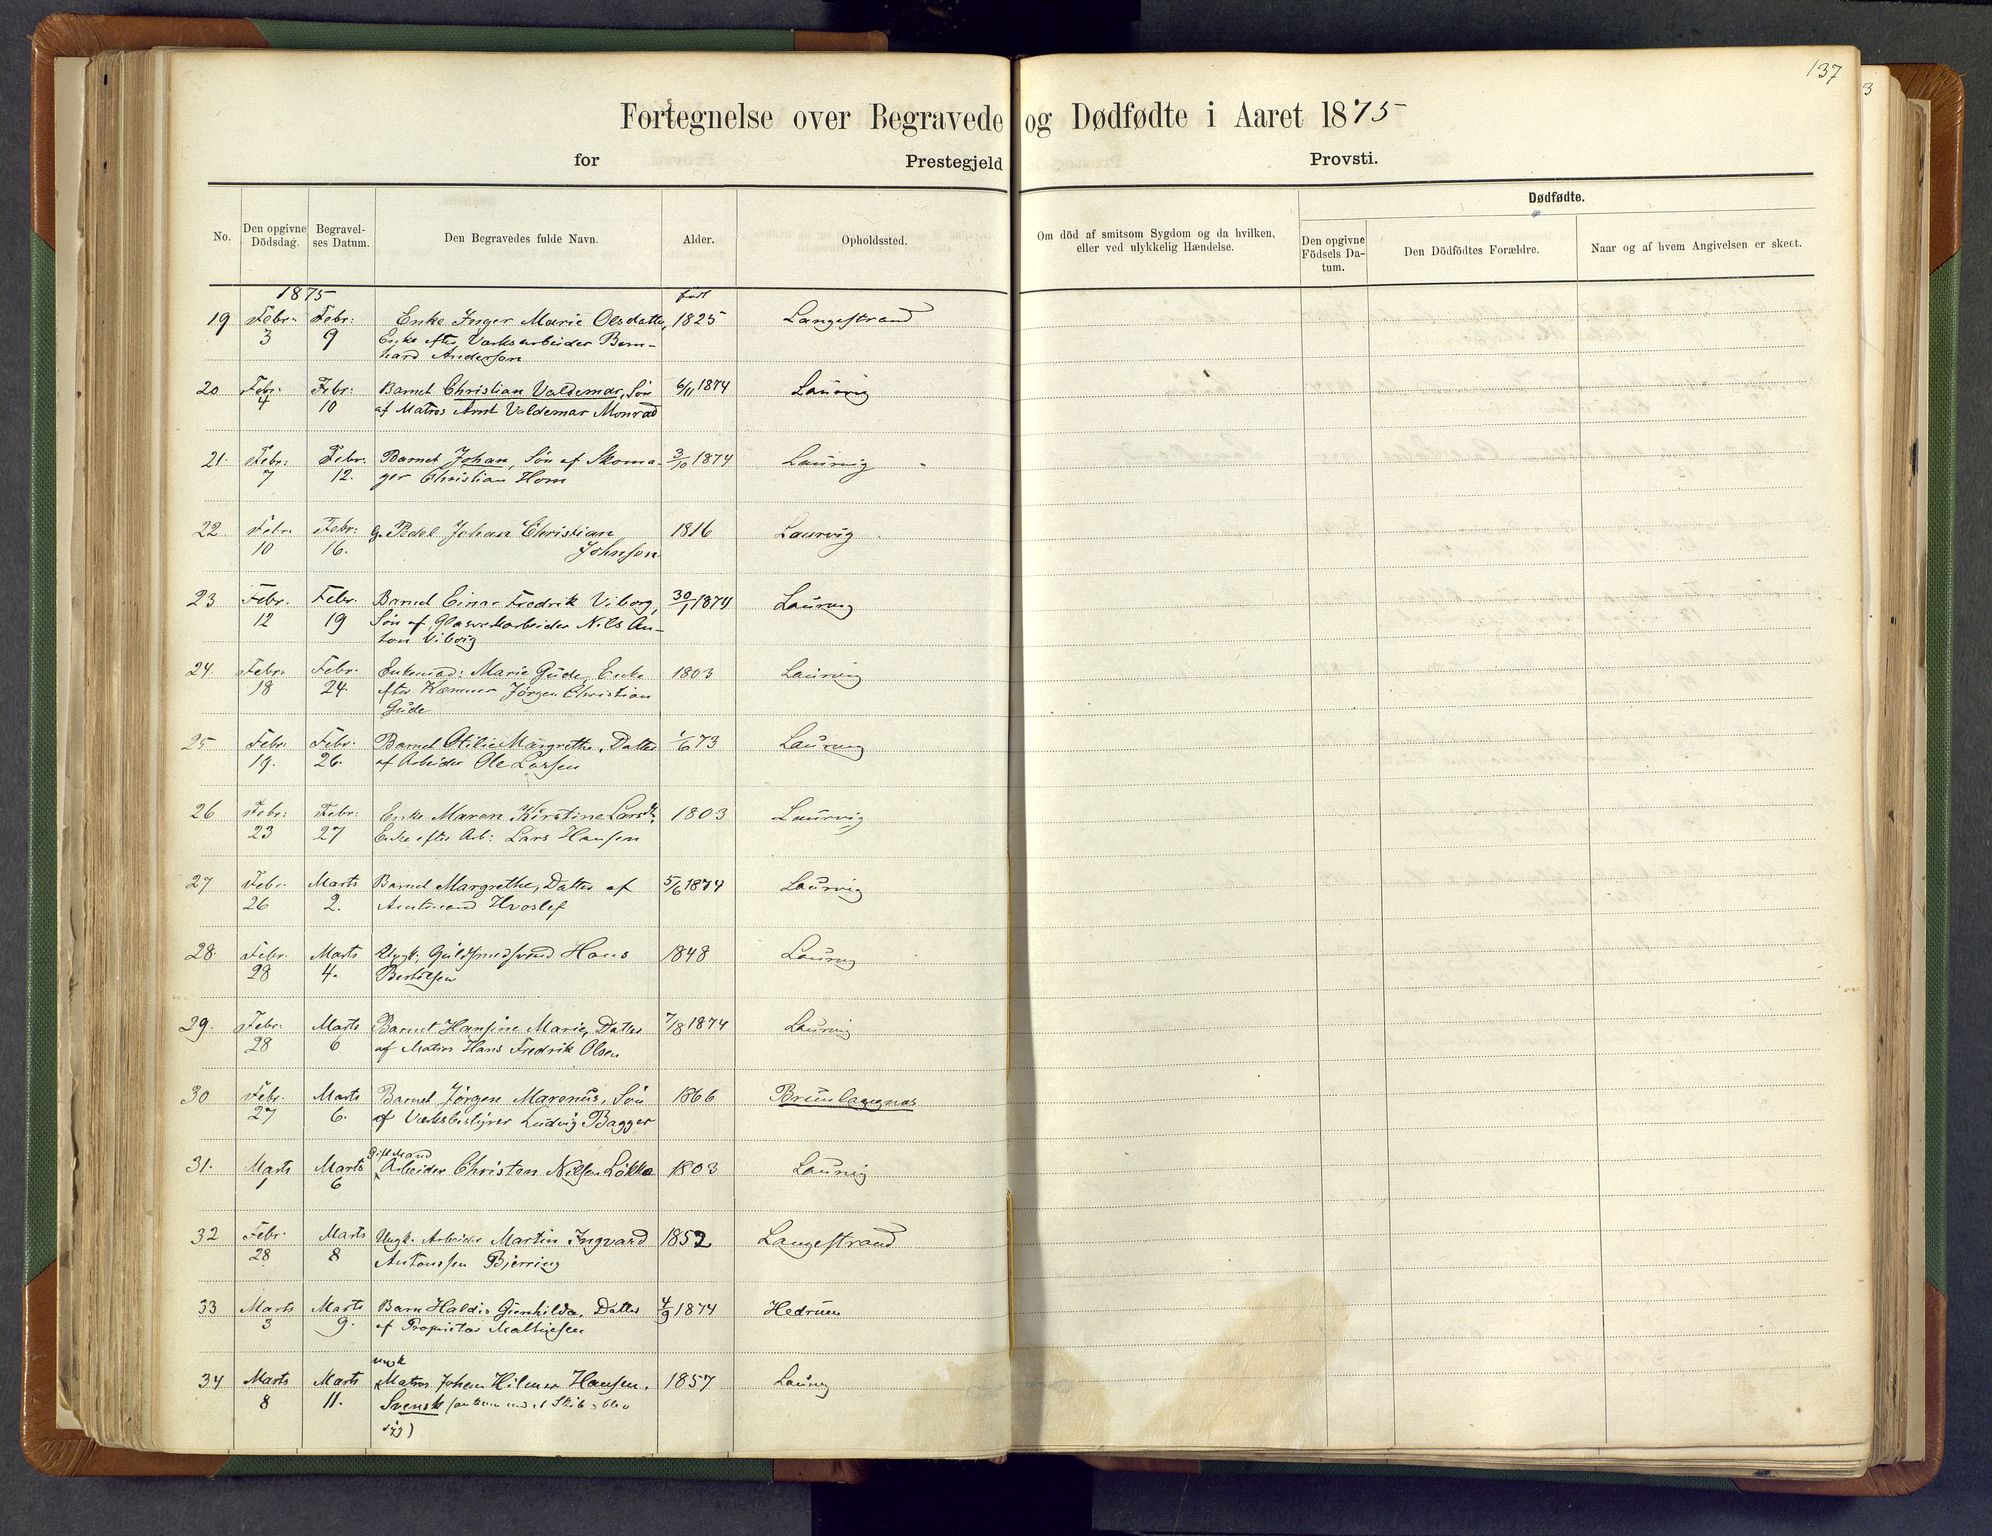 137
3
Fortegnelse over Begravede og Dødfødte i Aaret 1875
for Prestegjeld Provsti.
No.
Den opgivne Dödsdag.
Begravelses Datum.
Den Begravedes fulde Navn.
Alder.
Opholdssted.
Om död af smitsom Sygdom og da hvilken, eller ved ulykkelig Hændelse.
Dødfødte.
Den opgivne Födsels Datum.
Den Dödfödtes Forældre.
Naar og af hvem Angivelsen er skeet.
1875 født
19 Febr: 3 Febr: 9 Enke Inger Marie Olsdatter, 1825 Langestrand
Enke efter Værksarbeider Bern-
hard Andersen
20 Febr: 4 Febr: 10 Barnet Christian Valdemar, Søn 6/11 1874 Laurvig
af Matros Arnt Valdemar Monrad
21. Febr: 7 Febr: 12. Barnet Johan, Søn af Skoma- 3/10 1874 Laurvig
ger Christian Horn
22 Febr. 10 Febr: 16. G. Pedel Johan Christian 1816 Laurvig
Johnson
23 Febr. 12 Febr. 19 Barnet Einar Fredrik Viborg, 30/1 1874 Laurvig
Søn af Glasværkarbeider Nils An-
ton Viborg
24. Febr. 18 Febr. 24. Enkemad: Marie Gude, Enke 1803 Laurvig
efter Kæmner Jörgen Christian
Gude
25 Febr. 19. Febr. 26. Barnet Otilie Margrethe, Datter 1/6 73 Laurvig
af Arbeider Ole Larsen
26 Febr: 23 Febr: 27 Enke Maren Kirstine Larsdt, 1803 Laurvig
Enke efter Arb: Lars Hansen
27 Febr. 26 Marts 2. Barnet Margrethe, Datter af 5/6 1874 Laurvig
Amtmand Hvoslef
28. Febr. 28 Marts 4. Ungk. Guldsmedsvend Hans 1848 Laurvig
Bertelsen
29. Febr. 28 Marts 6 Barnet Hansine Marie, Datter 7/8 1874 Laurvig
af Matros Hans Fredrik Olsen
30 Febr. 27 Marts 6. Barnet Jørgen Marenus, Søn 1866 Brunlaugnæs
af Værksbestyrer Ludvig Bagger
Gift Mand
31. Marts 1 Marts 6 Arbeider Christen Nilsen Løkka 1803 Laurvig
32 Febr. 28 Marts 8 Ungk. Arbeider Martin Ingvard 1852 Langestrand
Antonsen Bjerring
33 Marts 3 Marts 9. Barn Haldis Gunhilda, Datter 4/9 1874 Hedrum
af Proprietær Mathiesen
ungk
34 Marts 8 Marts 11. Matros Johan Hilmer Hansen. 1857 Laurvig
Svensk
syg)